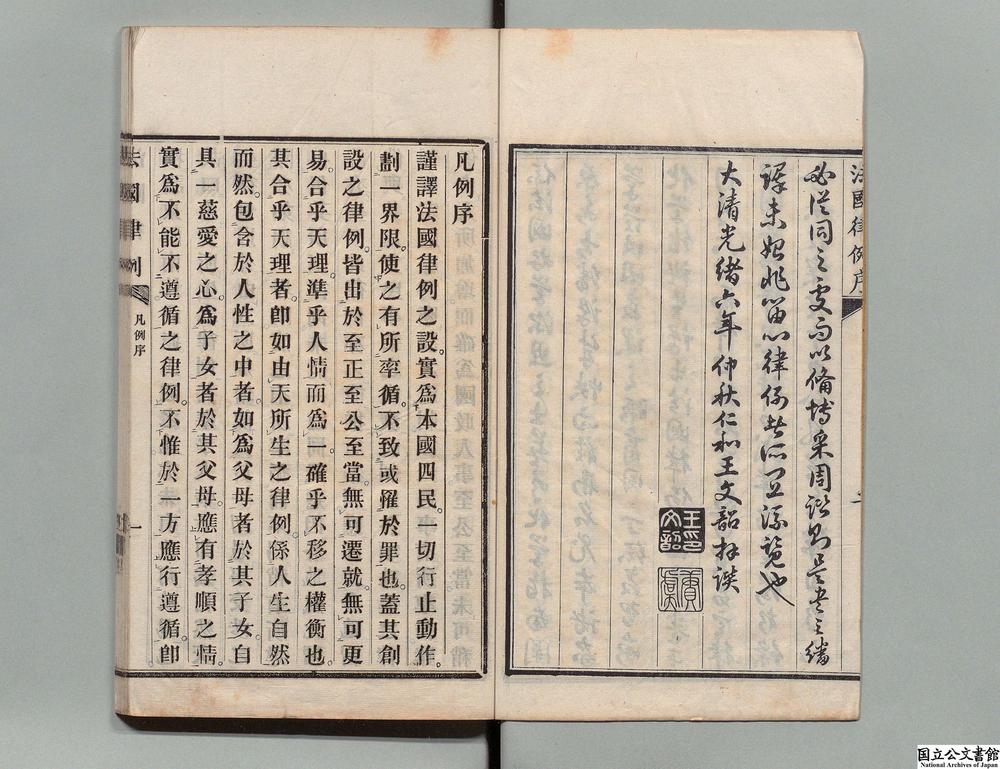 法國律例序
二
必從同之處而以備博采周諮則是書之繙
譯未始非留心律例者所宜流覽也
大清光緒六年仲秋仁和王文韶拜譔
王文韶印
凡例序
謹譯法國律例之設。實爲本國四民。一切行止動作。
劃一界限。使之有所率循。不致或罹於罪也。蓋其創
設之律例。皆出於至正至公至當。無可遷就。無可更
易。合乎天理。準乎人情。而爲一確乎不移之權衡也。
其合乎天理者。卽如由天所生之律例。係人生自然
而然。包含於人性之中者。如爲父母者。於其子女。自
具一慈愛之心。爲子女者。於其父母。應有孝順之情。
實爲不能不遵循之律例。不惟於一方應行遵循。卽
法國律例
凡例序
一
国立公文書館
National Archives of Japan